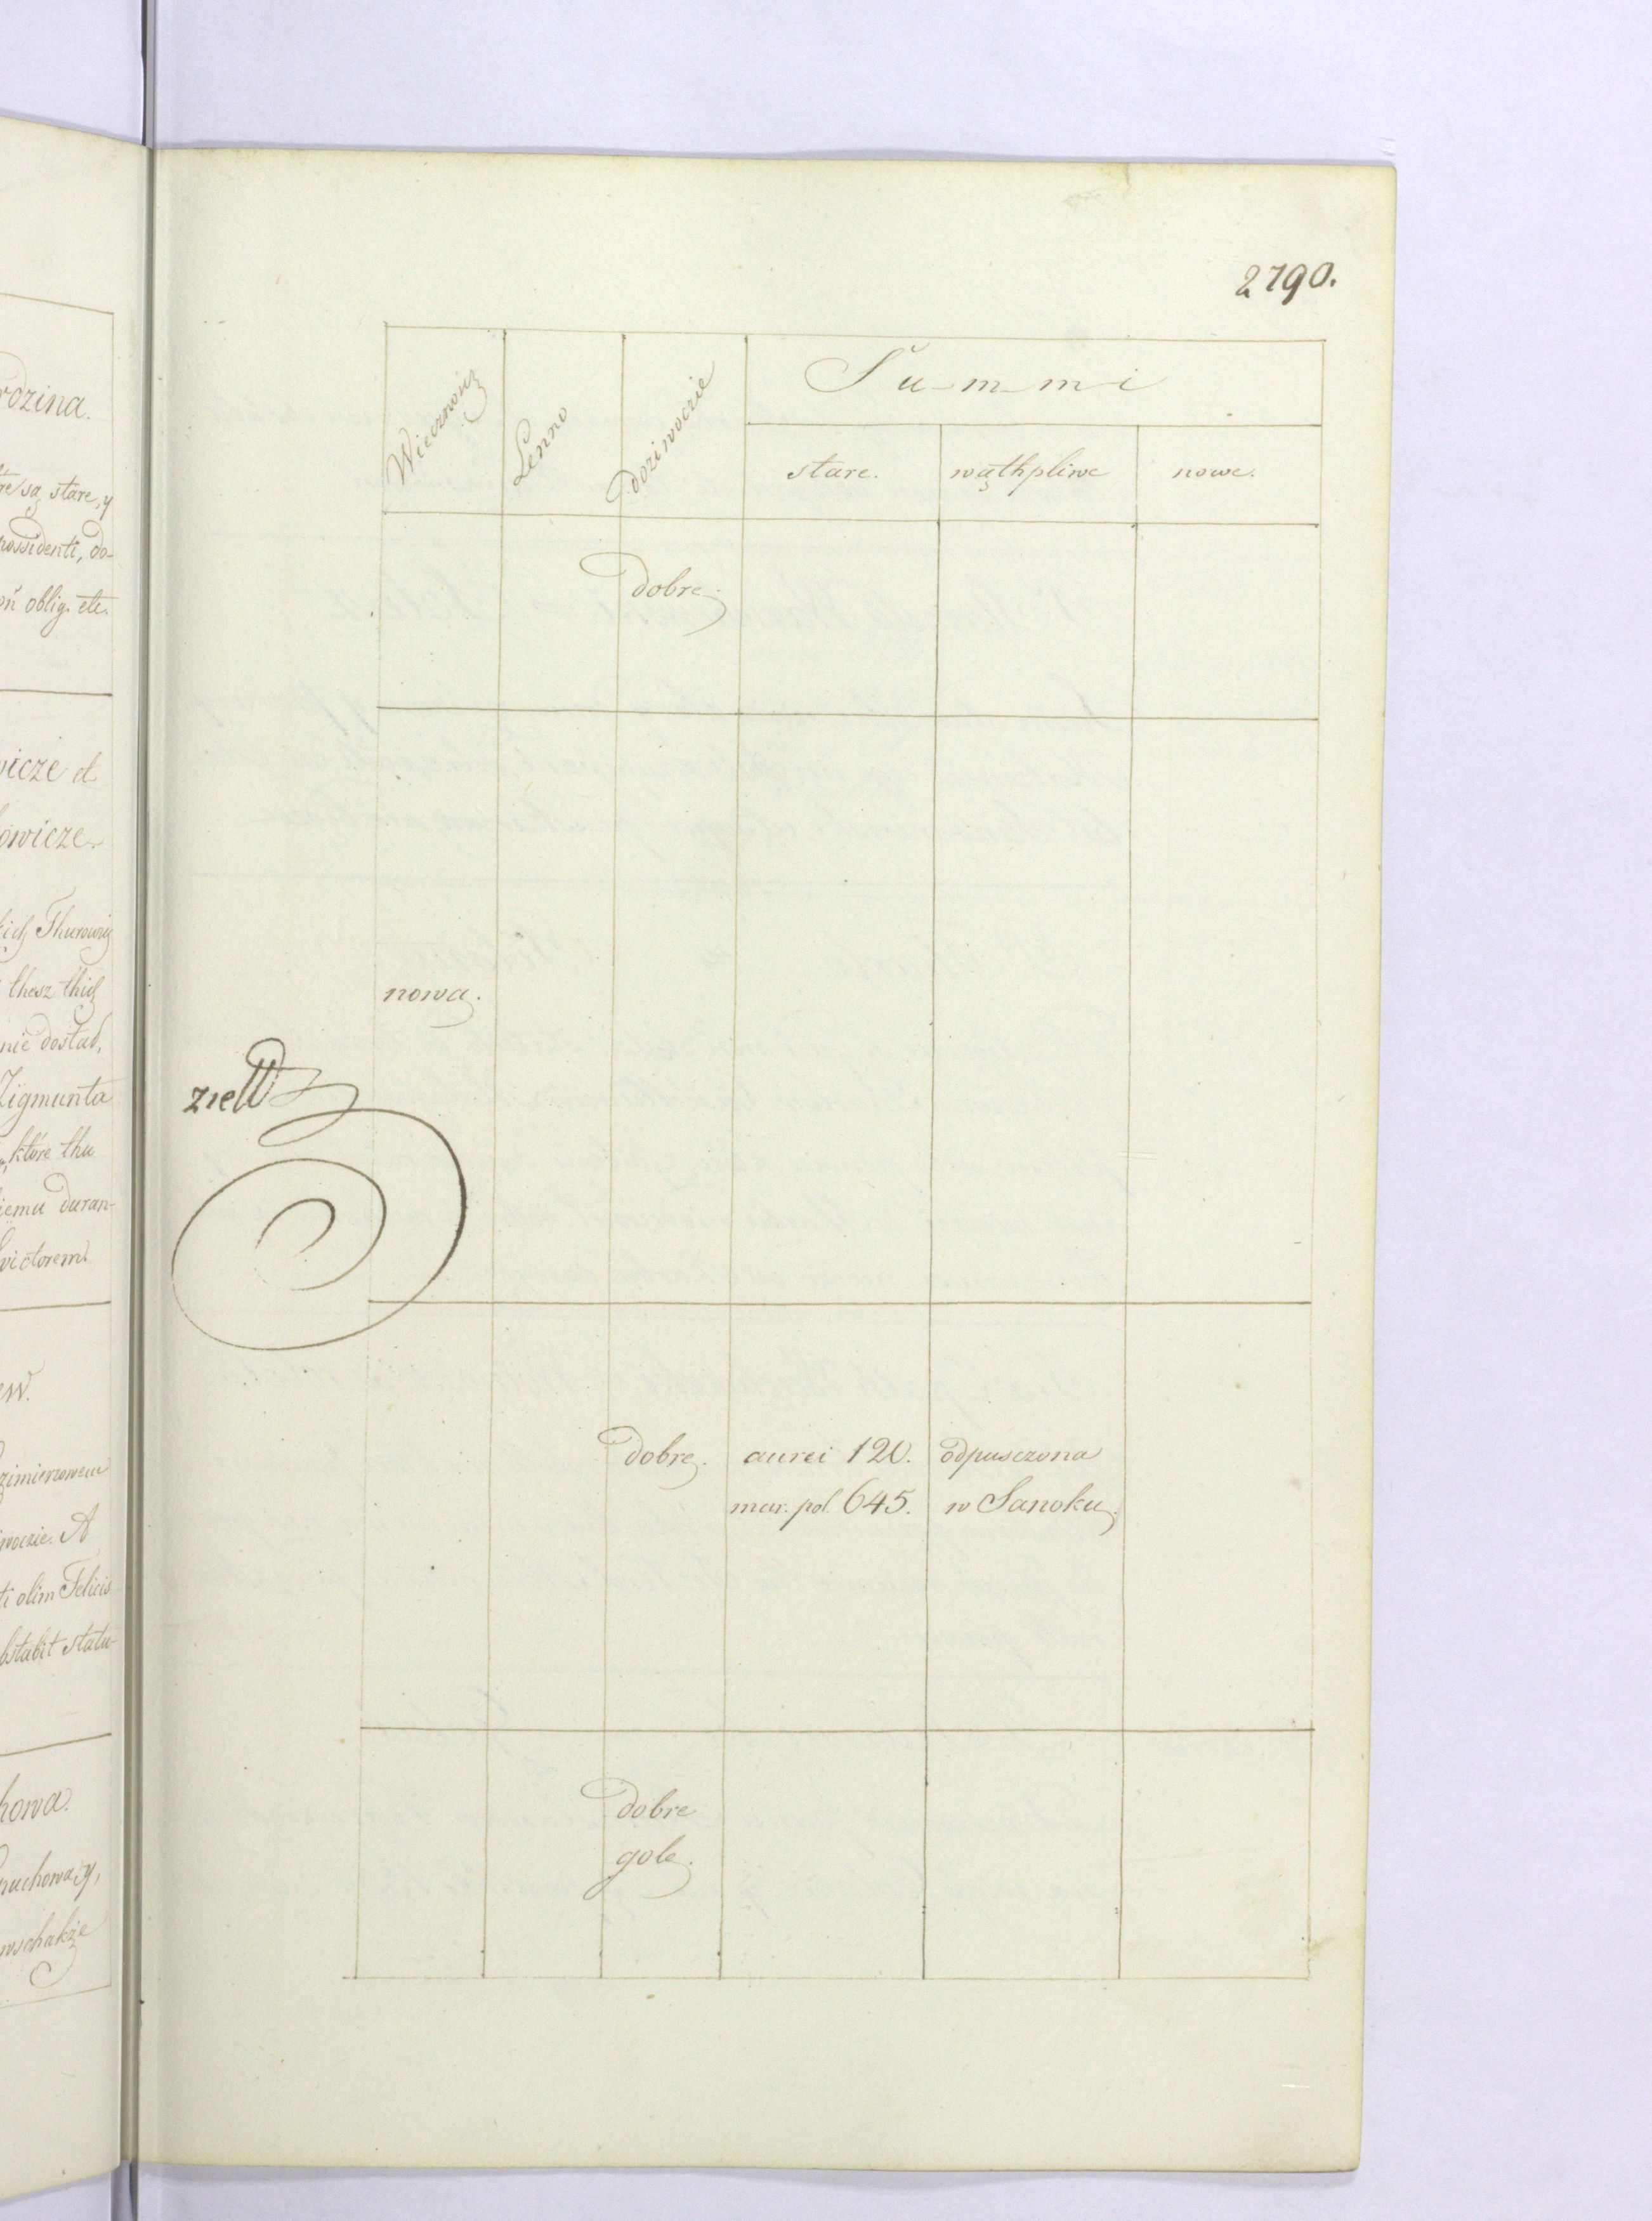 rodzina.
re są stare, y
possidenti, do-
oblig. etc.
wicze et
owicze.
kich Thurowicz
thesz thich
nie dostał,
Zigmunta
które thu
iemu duran-
victorem.
ew.
zimierzowem
woczie. A
ti olim Felicis
bstabit statu-
howa.
puchowa, y,
wschakże
2790.
Wieczność
Lenno
doziwoczie
Su-m-m-i
stare.
wąthpliwe
nowe.
dobre.
nowa.
dobre.
aurei 120.
mar. pol. 645.
odpusczona
w Sanoku.
dobre
gole.